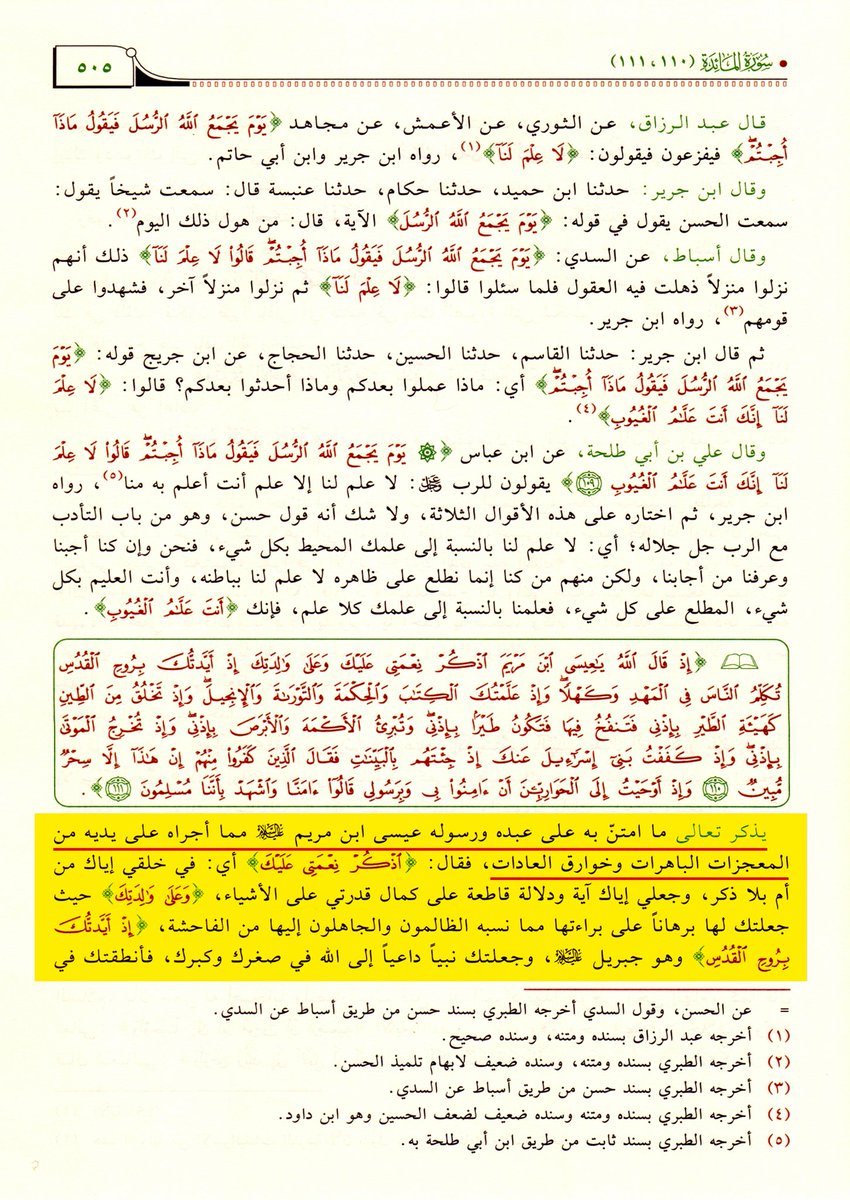 سُورَةُ المَائِدَةِ (١١٠، ١١١)
٥٠٥
قال عبد الرزاق، عن الثوري، عن الأعمش، عن مجاهد ﴿يَوْمَ يَجْمَعُ اللَّهُ الرُّسُلَ فَيَقُولُ مَاذَا
أُجِبْتُمْ﴾ فيفزعون فيقولون: ﴿لَا عِلْمَ لَنَا﴾(١)، رواه ابن جرير وابن أبي حاتم.
وقال ابن جرير: حدثنا ابن حميد، حدثنا حكام، حدثنا عنبسة قال: سمعت شيخاً يقول:
سمعت الحسن يقول في قوله: ﴿يَوْمَ يَجْمَعُ اللَّهُ الرُّسُلَ﴾ الآية، قال: من هول ذلك اليوم(٢).
وقال أسباط، عن السدي: ﴿يَوْمَ يَجْمَعُ اللَّهُ الرُّسُلَ فَيَقُولُ مَاذَا أُجِبْتُمْ قَالُوا لَا عِلْمَ لَنَا﴾ ذلك أنهم
نزلوا منزلاً ذهلت فيه العقول فلما سئلوا قالوا: ﴿لَا عِلْمَ لَنَا﴾ ثم نزلوا منزلاً آخر، فشهدوا على
قومهم(٣)، رواه ابن جرير.
ثم قال ابن جرير: حدثنا القاسم، حدثنا الحسين، حدثنا الحجاج، عن ابن جريج قوله: ﴿يَوْمَ
يَجْمَعُ اللَّهُ الرُّسُلَ فَيَقُولُ مَاذَا أُجِبْتُمْ﴾ أي: ماذا عملوا بعدكم وماذا أحدثوا بعدكم؟ قالوا: ﴿لَا عِلْمَ
لَنَا إِنَّكَ أَنتَ عَلَّامُ الْغُيُوبِ﴾(٤).
وقال علي بن أبي طلحة، عن ابن عباس ﴿۞ يَوْمَ يَجْمَعُ اللَّهُ الرُّسُلَ فَيَقُولُ مَاذَا أُجِبْتُمْ قَالُوا لَا عِلْمَ
لَنَا إِنَّكَ أَنتَ عَلَّامُ الْغُيُوبِ ۝١٠٩﴾ يقولون للرب ﷿: لا علم لنا إلا علم أنت أعلم به منا(٥)، رواه
ابن جرير، ثم اختاره على هذه الأقوال الثلاثة، ولا شك أنه قول حسن، وهو من باب التأدب
مع الرب جل جلاله؛ أي: لا علم لنا بالنسبة إلى علمك المحيط بكل شيء، فنحن وإن كنا أجبنا
وعرفنا من أجابنا، ولكن منهم من كنا إنما نطلع على ظاهره لا علم لنا بباطنه، وأنت العليم بكل
شيء، المطلع على كل شيء، فعلمنا بالنسبة إلى علمك كلا علم، فإنك ﴿أَنتَ عَلَّامُ الْغُيُوبِ﴾.
﴿إِذْ قَالَ اللَّهُ يَٰعِيسَى ابْنَ مَرْيَمَ اذْكُرْ نِعْمَتِي عَلَيْكَ وَعَلَىٰ وَٰلِدَتِكَ إِذْ أَيَّدتُّكَ بِرُوحِ الْقُدُسِ
تُكَلِّمُ النَّاسَ فِي الْمَهْدِ وَكَهْلًا وَإِذْ عَلَّمْتُكَ الْكِتَٰبَ وَالْحِكْمَةَ وَالتَّوْرَىٰةَ وَالْإِنجِيلَ وَإِذْ تَخْلُقُ مِنَ الطِّينِ
كَهَيْئَةِ الطَّيْرِ بِإِذْنِي فَتَنفُخُ فِيهَا فَتَكُونُ طَيْرًا بِإِذْنِي وَتُبْرِئُ الْأَكْمَهَ وَالْأَبْرَصَ بِإِذْنِي وَإِذْ تُخْرِجُ الْمَوْتَىٰ
بِإِذْنِي وَإِذْ كَفَفْتُ بَنِي إِسْرَٰٓءِيلَ عَنكَ إِذْ جِئْتَهُم بِالْبَيِّنَٰتِ فَقَالَ الَّذِينَ كَفَرُوا مِنْهُمْ إِنْ هَٰذَا إِلَّا سِحْرٌ
مُّبِينٌ ۝١١٠ وَإِذْ أَوْحَيْتُ إِلَى الْحَوَارِيِّنَ أَنْ ءَامِنُوا بِي وَبِرَسُولِي قَالُوا ءَامَنَّا وَاشْهَدْ بِأَنَّنَا مُسْلِمُونَ ۝١١١﴾.
يذكر تعالى ما امتنّ به على عبده ورسوله عيسى ابن مريم عليه السلام مما أجراه على يديه من
المعجزات الباهرات وخوارق العادات، فقال: ﴿اذْكُرْ نِعْمَتِي عَلَيْكَ﴾ أي: في خلقي إياك من
أم بلا ذكر، وجعلي إياك آية ودلالة قاطعة على كمال قدرتي على الأشياء، ﴿وَعَلَىٰ وَٰلِدَتِكَ﴾ حيث
جعلتك لها برهاناً على براءتها مما نسبه الظالمون والجاهلون إليها من الفاحشة، ﴿إِذْ أَيَّدتُّكَ
بِرُوحِ الْقُدُسِ﴾ وهو جبريل عليه السلام، وجعلتك نبياً داعياً إلى الله في صغرك وكبرك، فأنطقتك في
= عن الحسن، وقول السدي أخرجه الطبري بسند حسن من طريق أسباط عن السدي.
(١) أخرجه عبد الرزاق بسنده ومتنه، وسنده صحيح.
(٢) أخرجه الطبري بسنده ومتنه، وسنده ضعيف لابهام تلميذ الحسن.
(٣) أخرجه الطبري بسند حسن من طريق أسباط عن السدي.
(٤) أخرجه الطبري بسنده ومتنه وسنده ضعيف لضعف الحسين وهو ابن داود.
(٥) أخرجه الطبري بسند ثابت من طريق ابن أبي طلحة به.